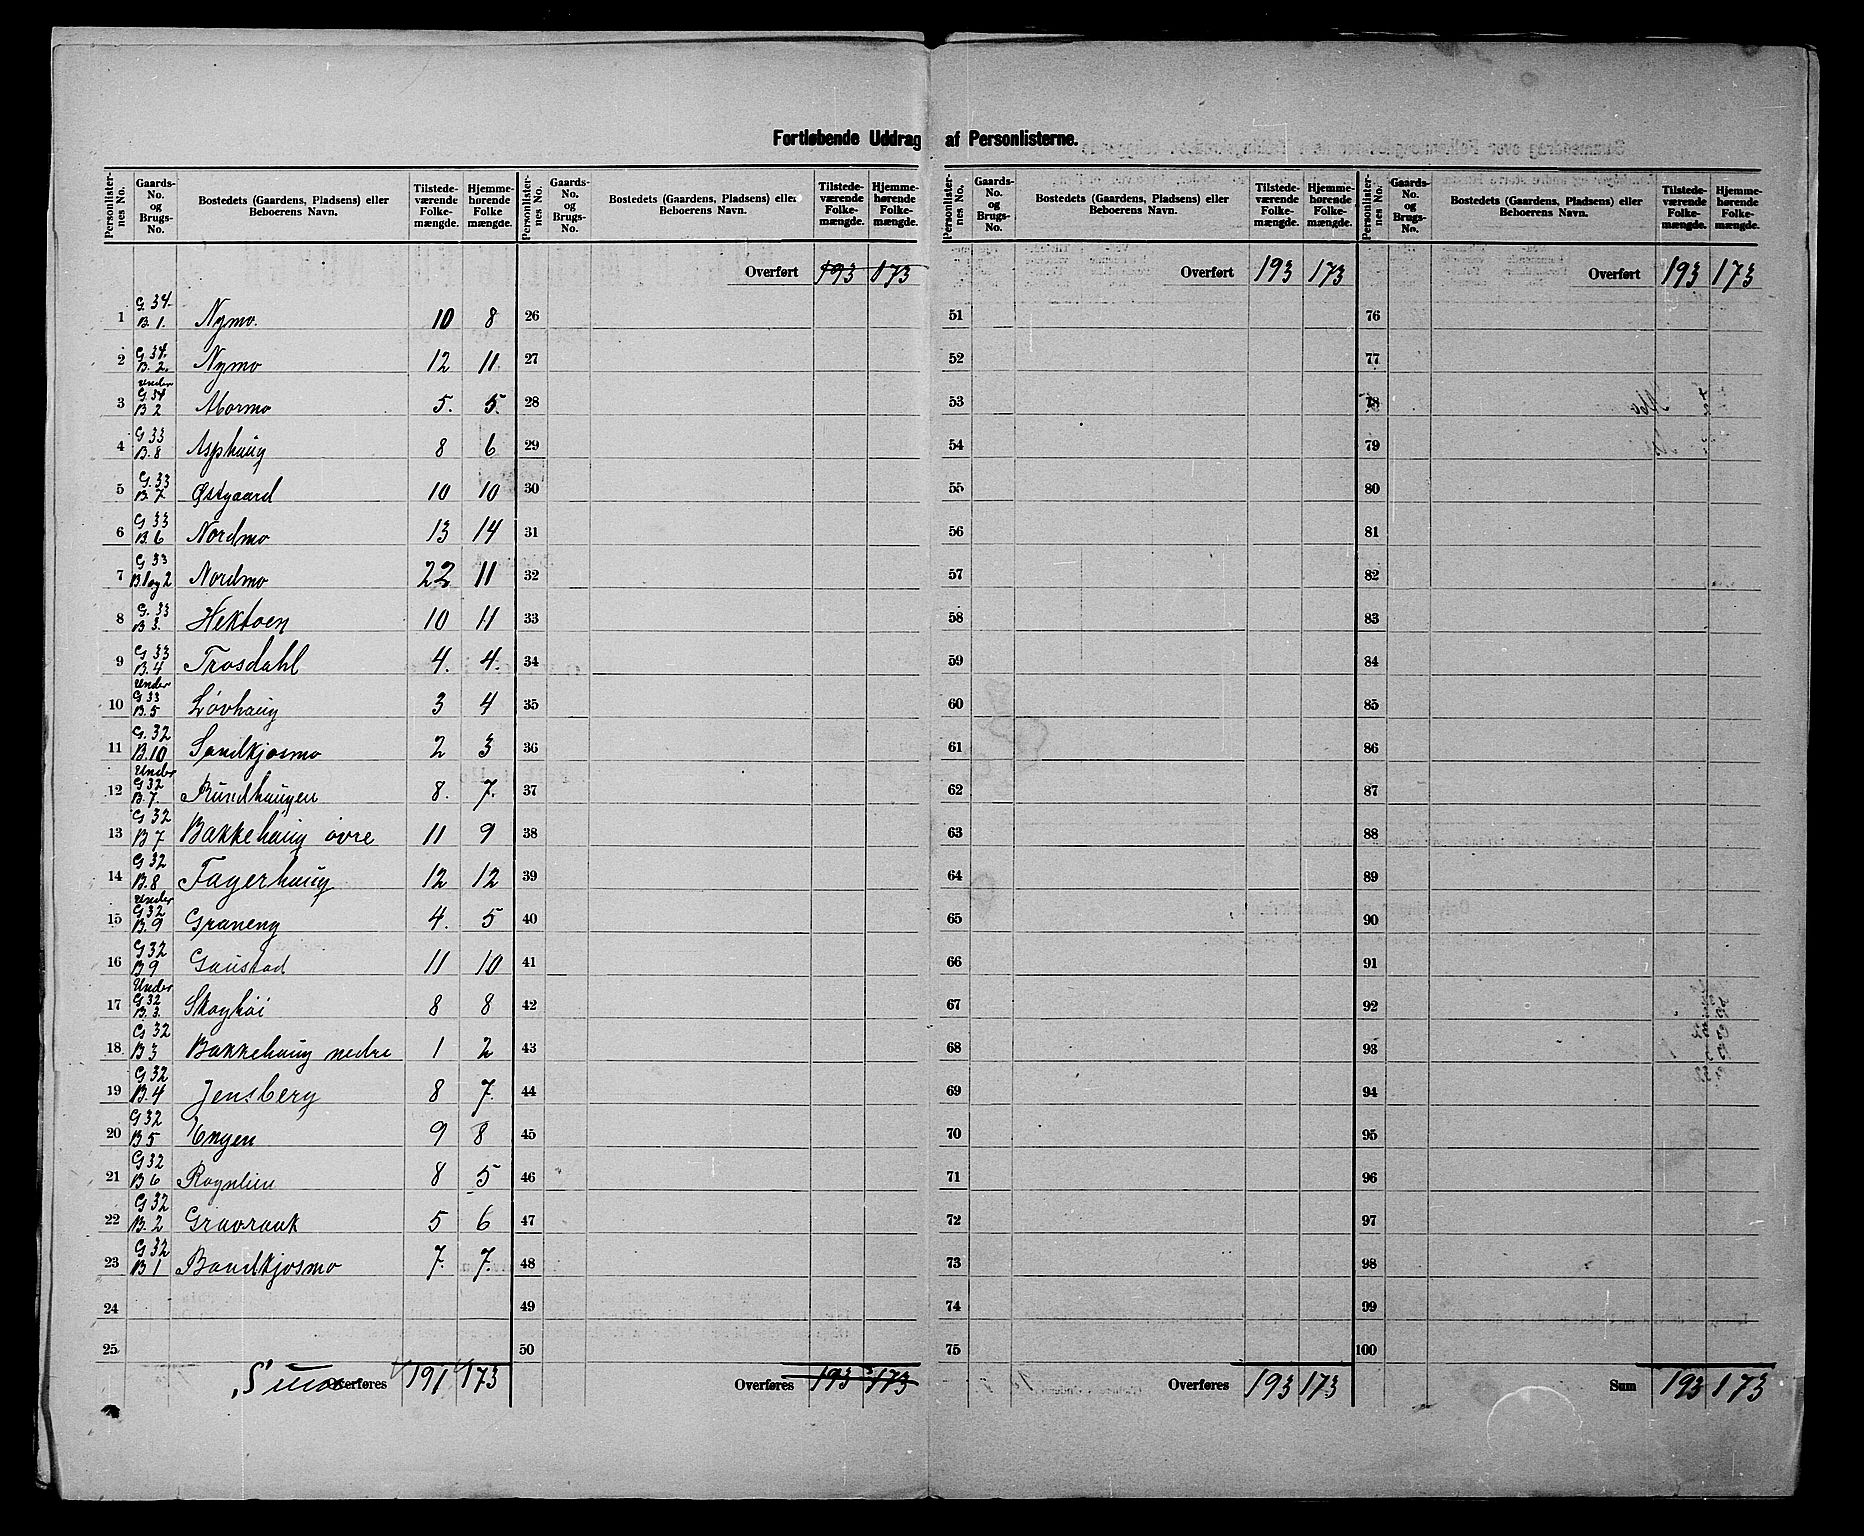 Fortløbende Uddrag af Personlisterne.
Personlisternes No. Gaards-No. og Brugs-No. Bostedets (Gaardens, Pladsens) eller Beboerens Navn. Tilstedeværende Folkemængde. Hjemmehørende Folkemængde.
Personlisternes No. Gaards-No. og Brugs-No. Bostedets (Gaardens, Pladsens) eller Beboerens Navn. Tilstedeværende Folkemængde. Hjemmehørende Folkemængde.
Personlisternes No. Gaards-No. og Brugs-No. Bostedets (Gaardens, Pladsens) eller Beboerens Navn. Tilstedeværende Folkemængde. Hjemmehørende Folkemængde.
Personlisternes No. Gaards-No. og Brugs-No. Bostedets (Gaardens, Pladsens) eller Beboerens Navn. Tilstedeværende Folkemængde. Hjemmehørende Folkemængde.
Overført 193 173 Overført 193 173 Overført 193 173
1 G. 34. B. 1. Nymo. 10 8 26 51 76
2 G. 34. B. 2. Nymo 12 11. 27 52 77
3 Under G. 34 B 2 Mormo 5. 5. 28 53 78
4 G 33 B. 8 Asphaug 8 6 29 54 79
5 G. 33 B. 7 Østgaard 10 10 30 55 80
6 G 33 B. 6 Nordmo 13 14 31 56 81
7 G 33 B. 1 og 2 Nordmo 22 11 32 57 82
8 G. 33 B 3. Hektoen 10 11 33 58 83
9 G 33 B. 4 Trosdahl 4. 4. 34 59 84
10 Under G 33 B. 5 Løvhaug 3 4 35 60 85
11 G. 32 B. 10 Sandkjosmo 2 3 36 61 86
12 Under G 32 B. 7. Rundhaugen 8. 7. 37 62 87
13 G 32 B 7 Bakkehaug øvre 11 9 38 63 88
14 G 32 B. 8 Fagerhaug 12 12 39 64 89
15 Under G 32 B. 9 Graneng 4. 5 40 65 90
16 G 32 B 9 Gaustad 11 10 41 66 91
17 Under G 32 B. 3. Skoghøi 8 8 42 67 92
18 G 32 B 3 Bakkehaug nedre 1 2 43 68 93
19 G 32 B. 4 Jensberg 8 7. 44 69 94
20 G 32 B 5 Engen 9 8 45 70 95
21 G 32 B 6 Rognlien 8 5 46 71 96
22 G 32 B. 2 Gravrauk 5 6 47 72 97
23 G 32 B 1 Bandkjosmo 7. 7. 48 73 98
24 49 74 99
25 50 75 100
Suma Overføres 191 173 Overføres 193 173 Overføres 193 173 Sum 193 173